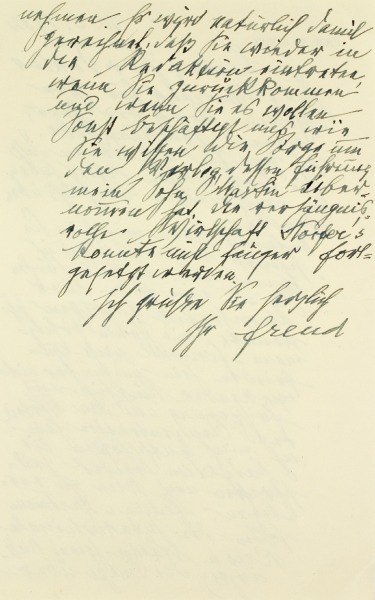 nehmen. Es wird natürlich damit
gerechnet, daß Sie wieder in
die Redaktion eintreten,
wenn Sie zurückkommen
und wenn Sie es wollen.
Sonst beschäftigt uns, wie
Sie wissen die Sorge um
den Verlag dessen Führung
mein Sohn Martin über
nommen hat. Die verhängnis-
volle Wirtschaft Storfer's
konnte nicht länger fort-
gesetzt werden.
Ich grüße Sie herzlich
Ihr Freud